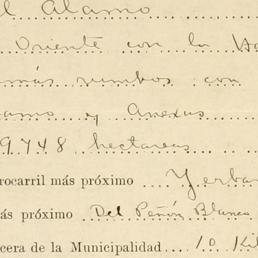 el Alamo
Oriente con la Ha
más rumbos con
amo y Anexas
9748 hectareas
rocarril más próximo Yerba
ás próximo Del Peñón Blanco
cera de la Municipalidad 10 Kil